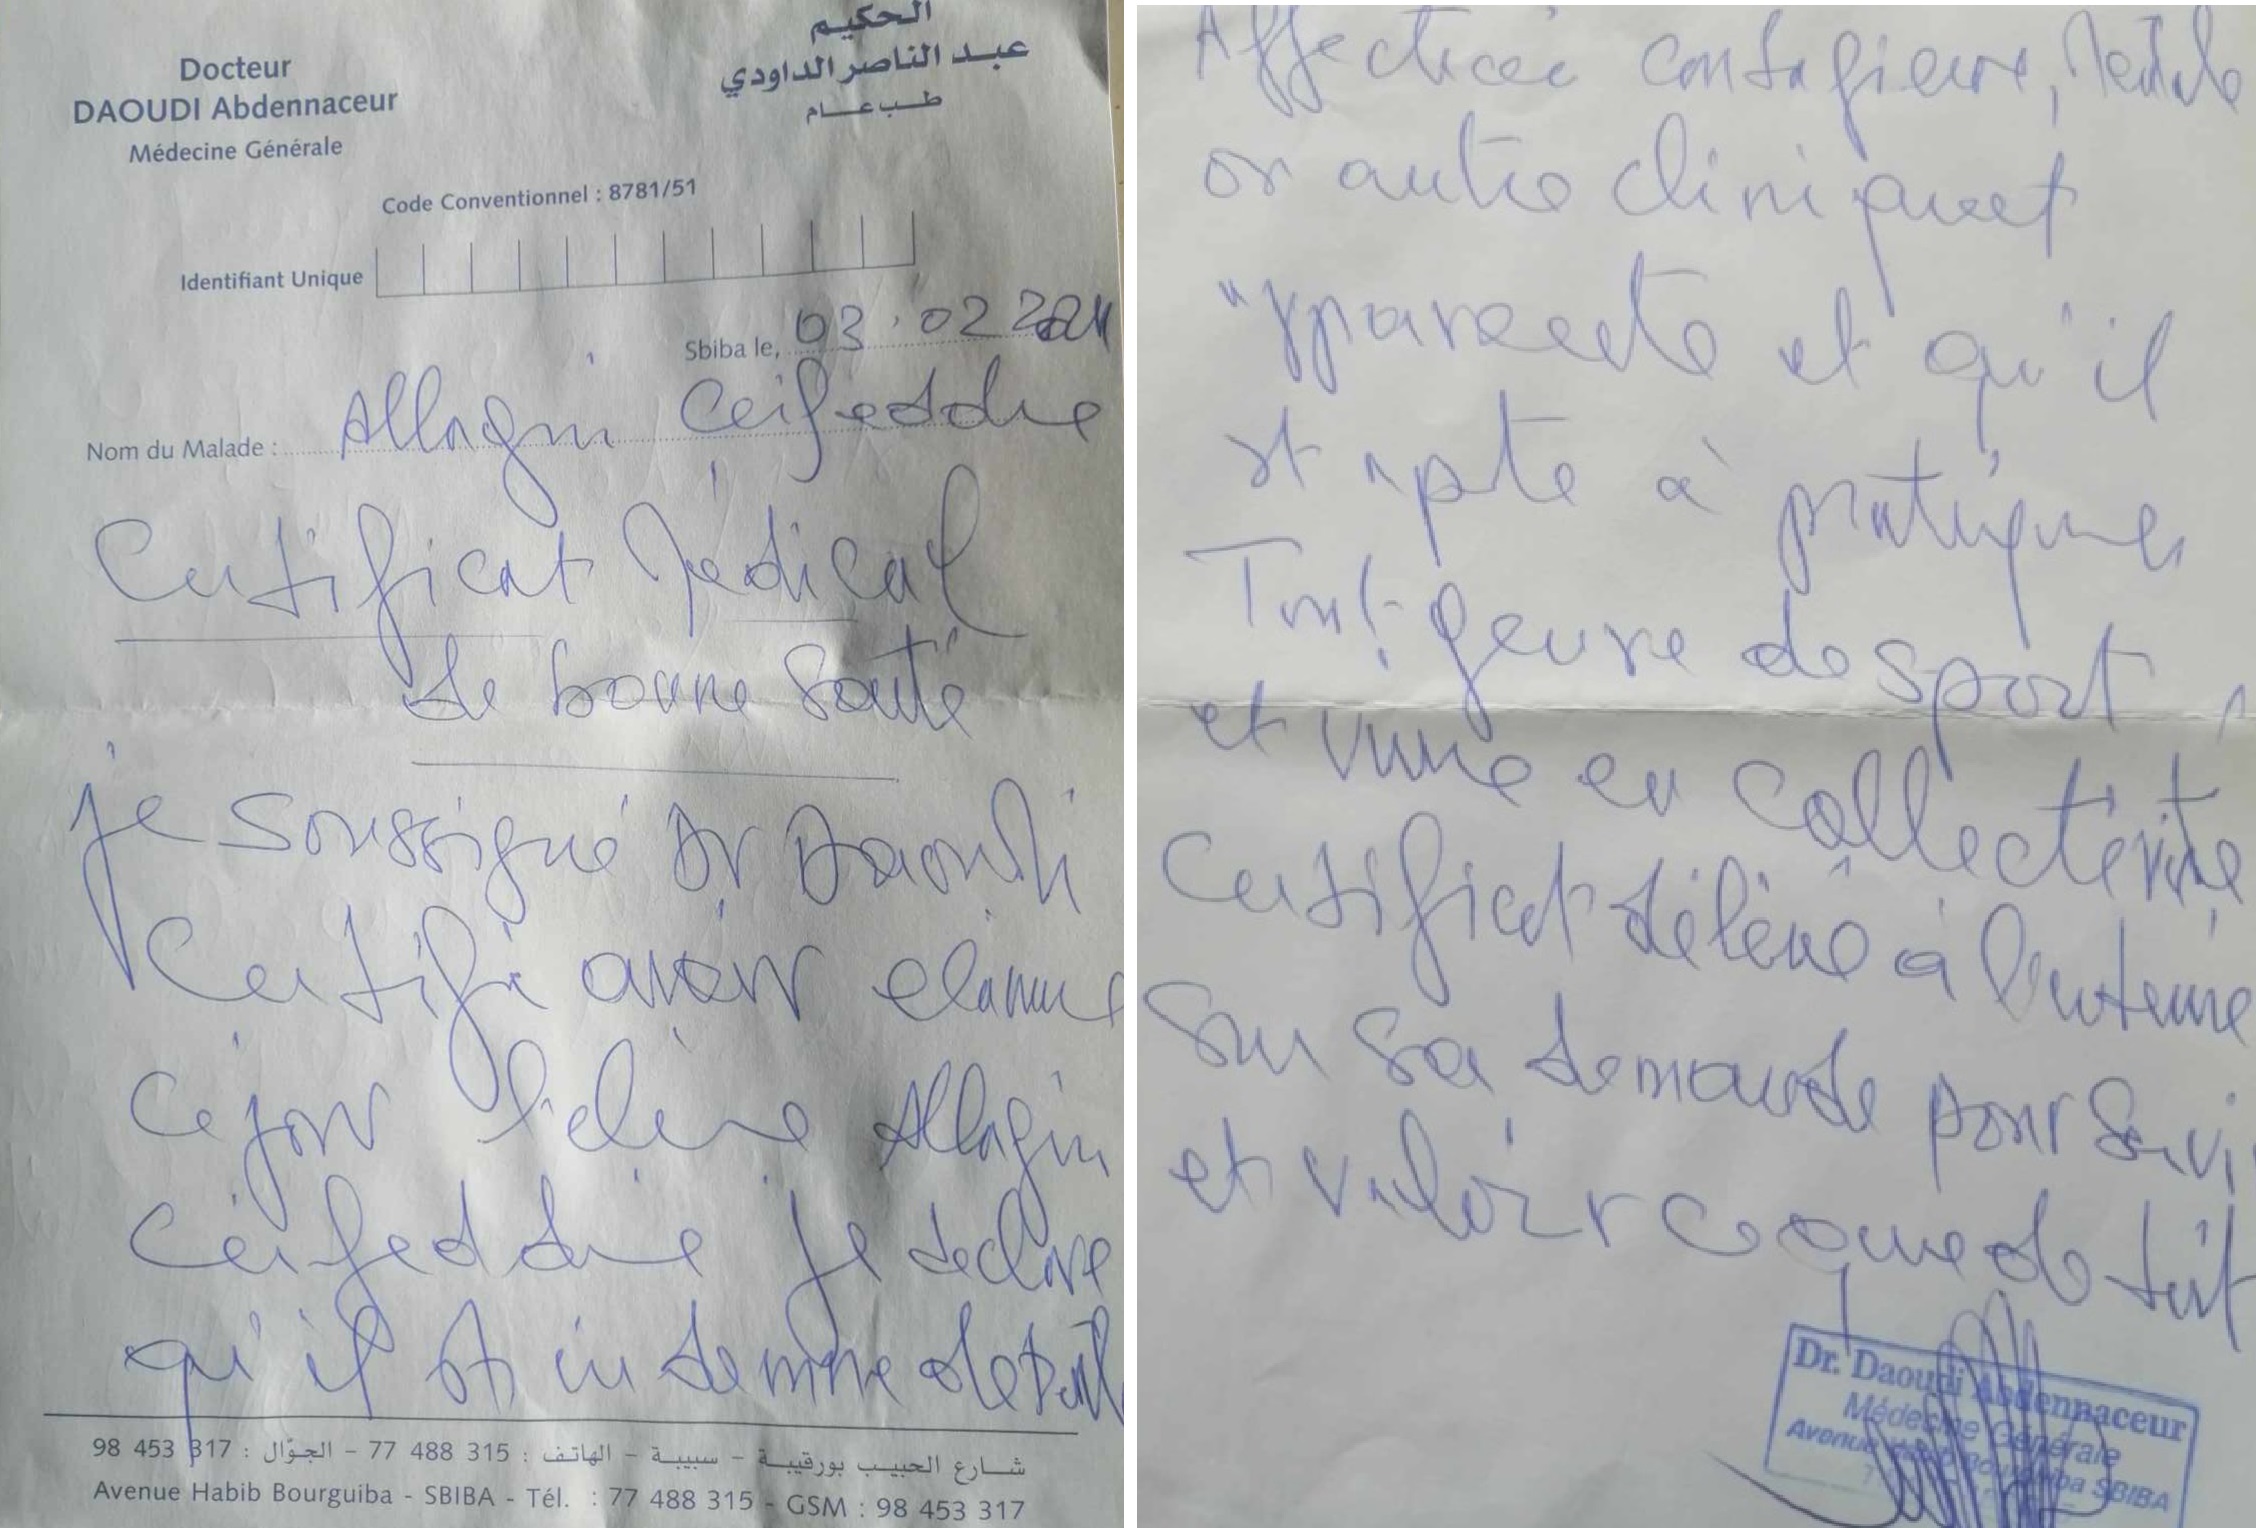 Docteur
DAOUDI Abdennaceur
Médecine Générale
الحكيم
عبد الناصر الداودي
طب عام
Code Conventionnel : 8781/51
Identifiant Unique
Sbiba le, 03.02 2021
Nom du Malade : Allagui Ceifeddine
Certificat Médical
de bonne Santé
je soussigné Dr Daoudi
Certifie avoir examiné
Ce jour l'élève Allagui
Ceifeddine je declare
qu'il est indemne de toute
شارع الحبيب بورقيبة - سبيبة - الهاتف : 315 488 77 - الجوّال : 317 453 98
Avenue Habib Bourguiba - SBIBA - Tél. : 77 488 315 - GSM : 98 453 317
Affection contagieuse, mentale
ou autre cliniquet
apparente et qu'il
est apte à pratiquer
Tout genre de sport
et vivre en collectivité
Certificat délivré à l'interessé
Sur sa demande pour Servir
et valoir ce que de droit
Dr. Daoudi Abdennaceur
Médecine Générale
Avenue Habib Bourguiba SBIBA